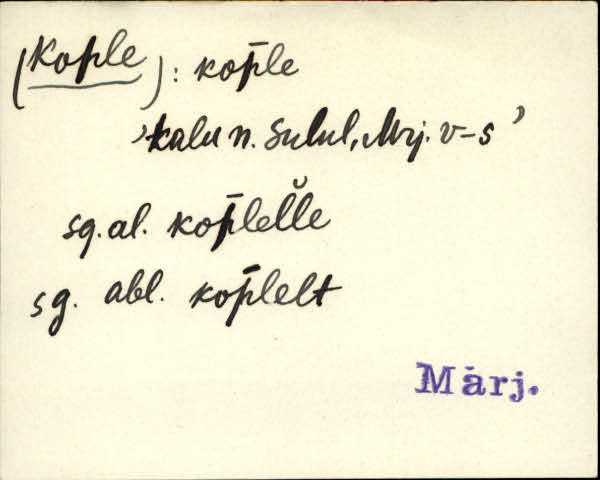 (Kople): kop̄le
'talu n. Sulul, Mrj. v-s'
sg. al. kop̄lel̆le
sg. abl. kop̄lelt
Märj.